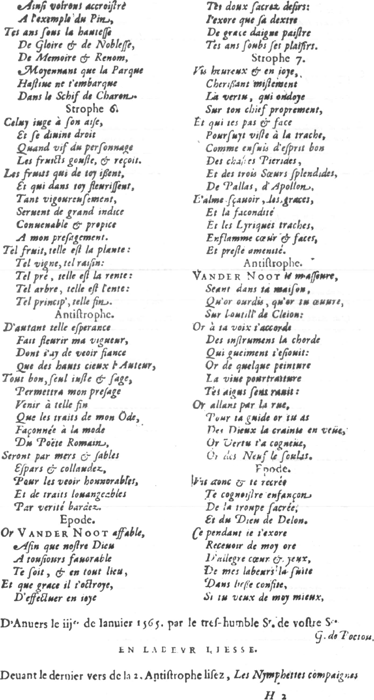 Ainsi volront accroistre
A l'exemple du Pin,
Tes ans sous la hautesse
De Gloire & de Noblesse,
De Memoire & Renom,
Moyennant que la Parque
Hastiue ne t'embarque
Dans le Schif de Charon.
Strophe 6.
Celuy iuge à son aise,
Et se diuine droit
Quand vif du personnage
Les fruicts gouste, & reçoit.
Les fruits qui de toy issent,
Et qui dans toy fleurissent,
Tant vigoureusement,
Seruent de grand indice
Conuenable & propice
A mon presagement.
Tel fruit, telle est la plante:
Tel vigne, tel raisin:
Tel pré, telle est la rente:
Tel arbre, telle est l'ente:
Tel princip', telle fin.
Antistrophe.
D'autant telle esperance
Fais fleurir ma vigueur,
Dont i'ay de veoir fiance
Que des hauts cieux l'Auteur,
Tout bon, seul iuste & sage,
Permettra mon presage
Venir à telle fin
Que les traits de mon Ode,
Façonnée à la mode
Du Poëte Romain,
Seront par mers & sables
Espars & collaudez,
Pour les veoir honnorables,
Et de traits louangeables
Par verité bardez.
Epode.
Or VANDER NOOT affable,
Afin que nostre Dieu
A tousiours fauorable
Te soit, & en tout lieu,
Et que grace il t'octroye,
D'effectuer en ioye
Tes doux sacrez desirs:
I'exore que sa dextre
De grace daigne paistre
Tes ans soubs ses plaisirs.
Strophe 7.
Vis heureux & en ioye,
Cherissant mistement
La vertu, qui ondoye
Sur ton chief proprement,
Et qui tes pas & face
Poursuyt viste à la trache,
Comme ensuis d'esprit bon
Des chastes Pierides,
Et des trois Sœurs splendides,
De Pallas, d'Apollon.
L'alme sçauoir, les graces,
Et la facondité
Et les Lyriques traches,
Enflamme cœur & faces,
Et preste amenité.
Antistrophe.
VANDER NOOT le
Seant dans ta maison,
Qu'or ourdis, qu'or tu œuure,
Sur l'outil de Cleion:
Or à ta voix s'accorde
Des instrumens la chorde
Qui guciment s'esiouit:
Or de quelque peinture
La viue pourtraiture
Tes aigus sens rauit:
Or allant par la rue,
Pour ta guide or tu as
Des Dieux la crainte en veüe,
Or Vertu t'a cogneüe,
Or des Neuf le soulas.
Epode.
Vis donc & te recrée
Te cognoistre enfançon
De la trompe sacrée,
Et du Dieu de Delon.
Ce pendant ie t'exore
Receuoir de moy ore
D'alegre cœur & yeux,
De mes labeurs la suite
Dans confite,
Si tu veux de moy mieux.
D'Anuers le iij<sup>e</sup> de Ianuier 1565. par le tres-humble S<sup>r</sup>. de vostre S<sup>r</sup>
G. de
EN LABEVR LIESSE.
Deuant le dernier vers de la 2. Antistrophe lisez, Les Nymphettes compaignes
H 2